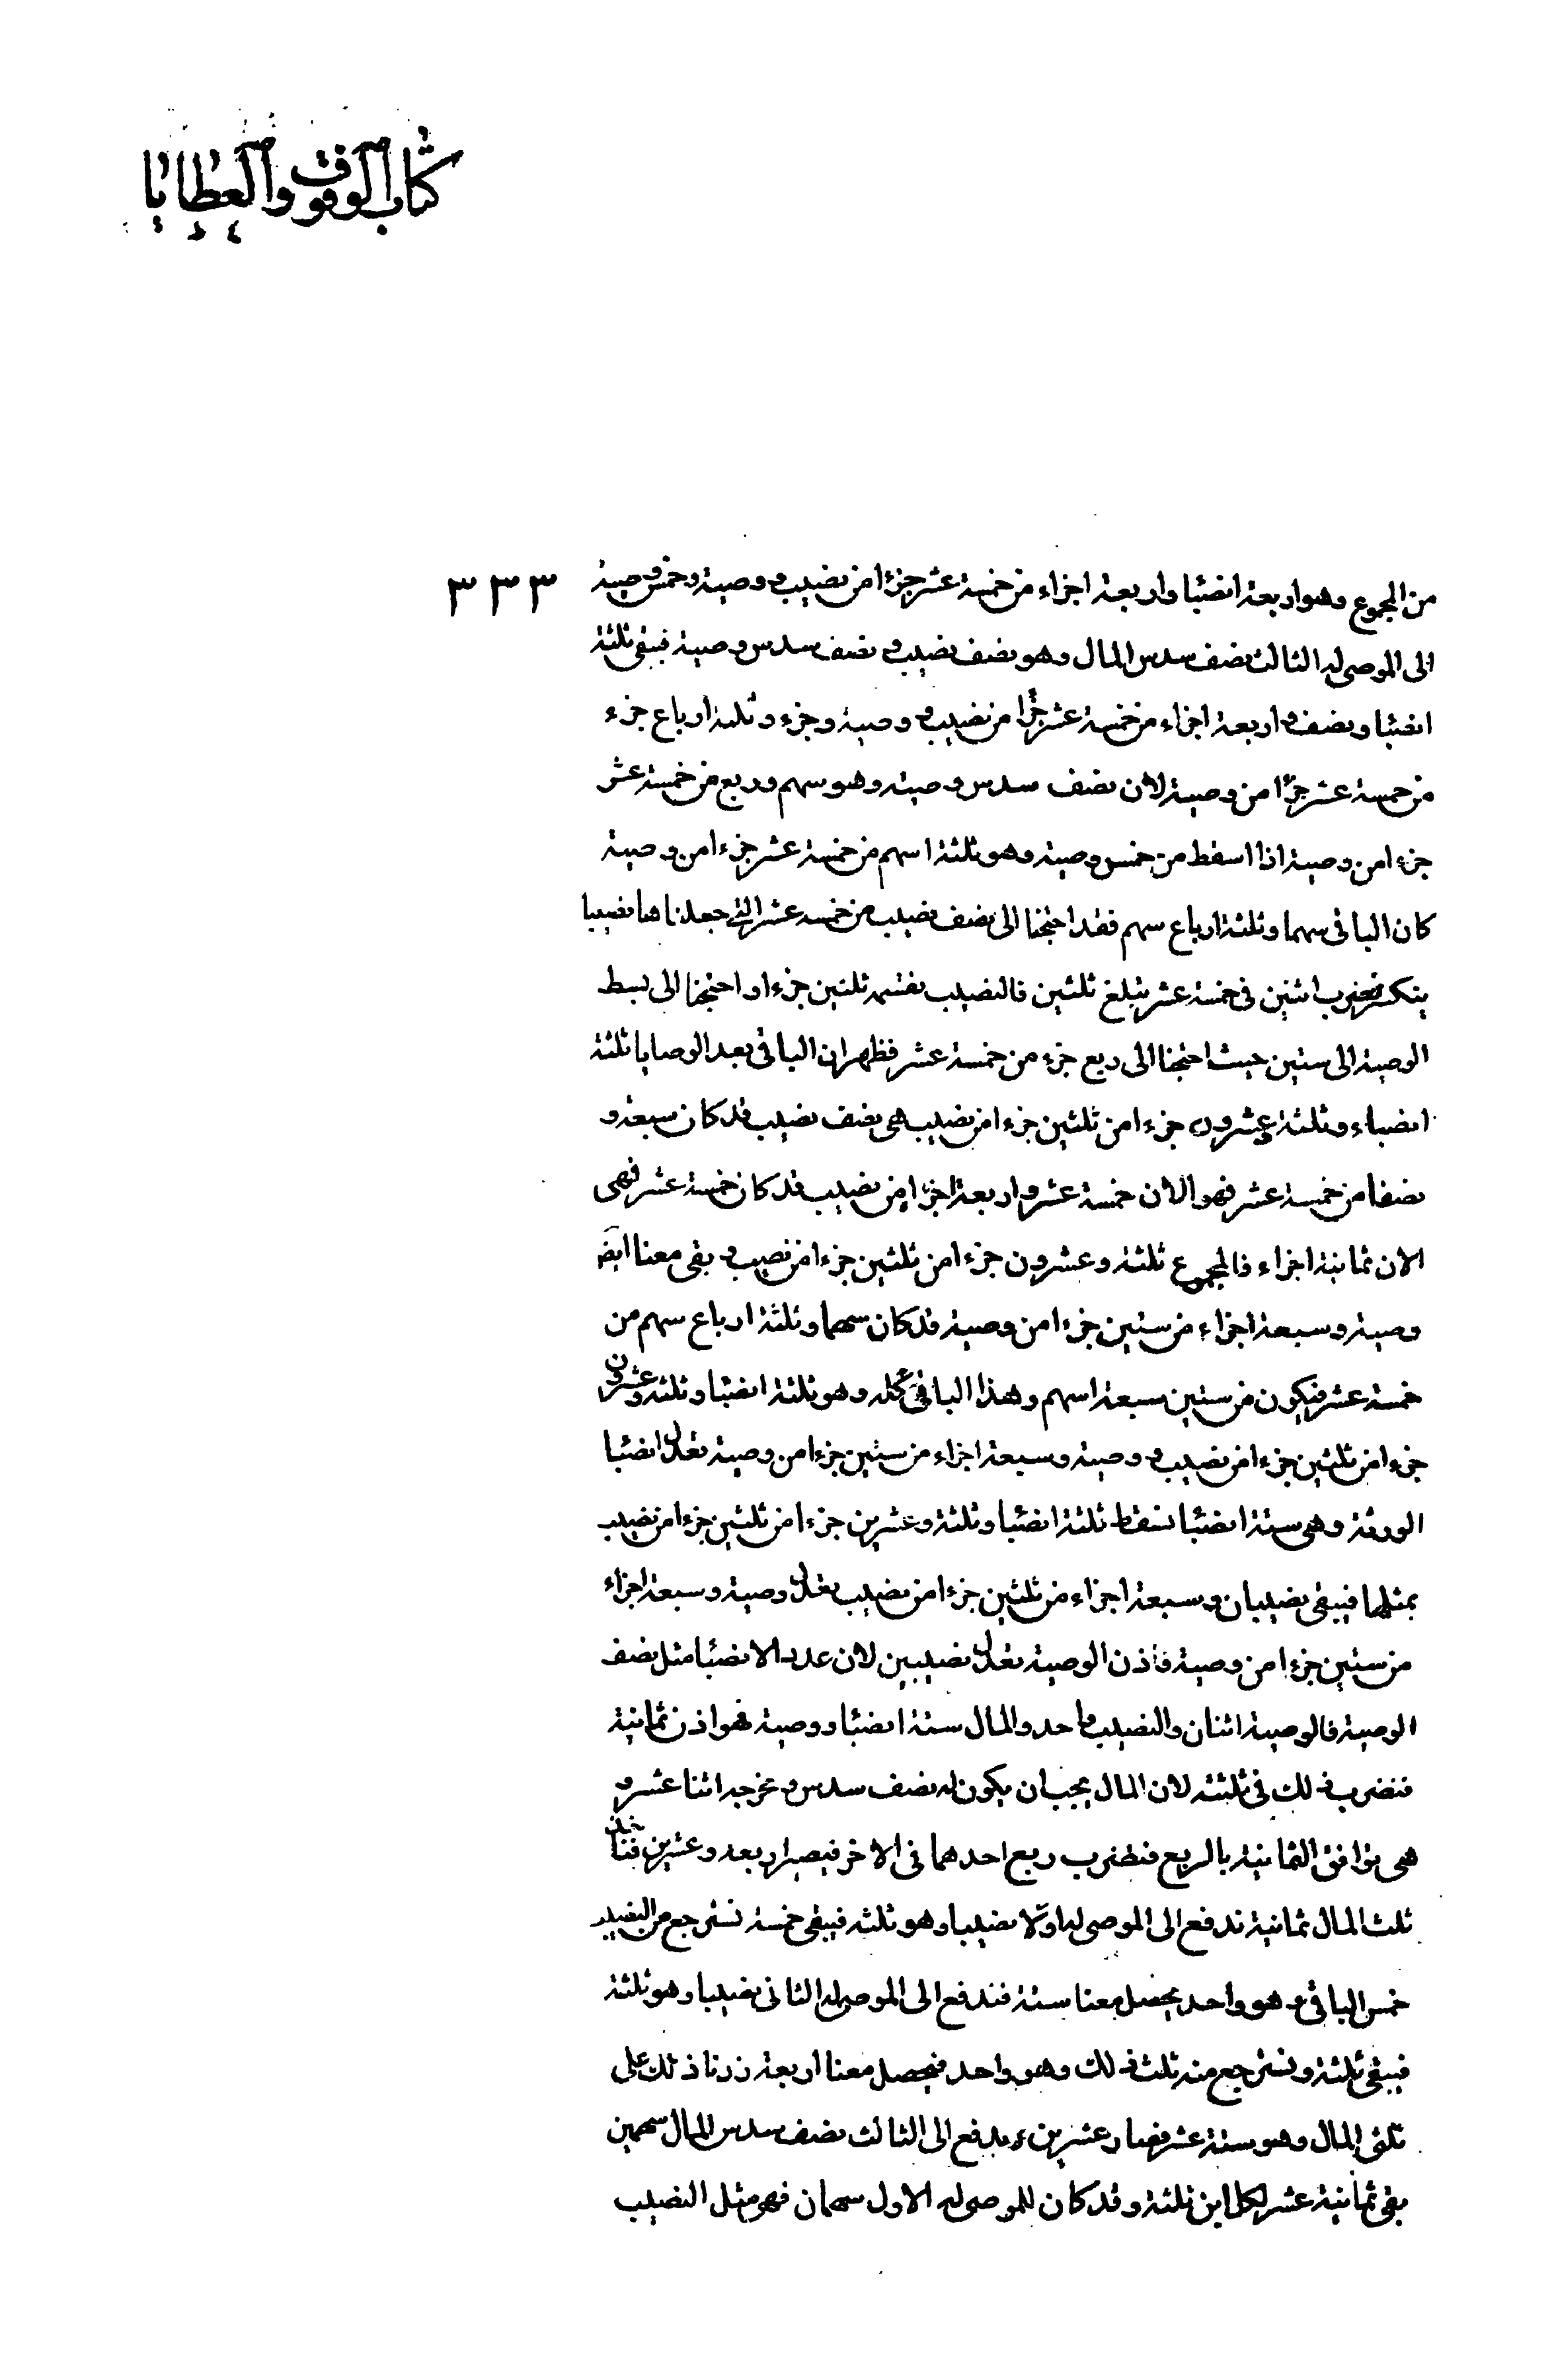 كتاب الوقوف والعطايا
٣٣٣
من المجموع وهو اربعة انصبا واربعة اجزاء من خمسة عشر جزءا من نصيب و وصية وخمس وصية
الى الموصى له الثالث نصف سدس المال وهو نصف نصيب و نصف سدس وصية فيبقى ثلثة
انصبا ونصف و اربعة اجزاء من خمسة عشر جزءا من نصيب و وصية وجزء و ثلثة ارباع جزء
من خمسة عشر جزءا من وصية لان نصف سدس وصيته وهو سهم وربع من خمسة عشر
جزءا من وصية اذا اسقط من خمس وصية وهو ثلثة اسهم من خمسة عشر جزءا من وصية
كان الباقى سهما وثلثة ارباع سهم فقد احتجنا الى نصف نصيب من خمسة عشر التى جعلناها نصيبا
ينكسر فنضرب اثنين فى خمسة عشر يبلغ ثلثين فالنصيب نقسمه ثلثين جزءا و احتجنا الى بسط
الوصية الى ستين حيث احتجنا الى ربع جزء من خمسة عشر فظهر ان الباقى بعد الوصايا ثلثة
انصباء وثلثة وعشرون جزءا من ثلثين جزءا من نصيب هى نصف نصيب قد كان سبعة و
نصفا من خمسة عشر فهو الان خمسة عشر و اربعة اجزاء من نصيب قد كان خمسة عشر فهى
الان ثمانية اجزاء فالمجموع ثلثة وعشرون جزءا من ثلثين جزءا من نصيب و بقى معنا ايضا
وصية وسبعة اجزاء من ستين جزءا من وصية قد كان سهما وثلثة ارباع سهم من
خمسة عشر فيكون من ستين سبعة اسهم وهذا الباقى كله وهو ثلثة انصبا وثلثة وعشرون
جزءا من ثلثين جزءا من نصيب و وصية وسبعة اجزاء من ستين جزءا من وصية تعدل انصبا
الورثة وهى ستة انصبا نسقط ثلثة انصبا وثلثة وعشرين جزءا من ثلثين جزءا من نصيب
بمثلها فيبقى نصيبان وسبعة اجزاء من ثلثين جزءا من نصيب تعدل وصية وسبعة اجزاء
من ستين جزءا من وصية فاذن الوصية تعدل نصيبين لان عدد الانصبا مثل نصف
الوصية فالوصية اثنان والنصيب واحد والمال ستة انصبا ووصية فهو اذن ثمانية
فنضرب ذلك فى ثلثة لان المال يجب ان يكون له نصف سدس و مخرجه اثنا عشر و
هى توافق الثمانية بالربع فنضرب ربع احدهما فى الاخر فيصير اربعة وعشرين فناخذ
ثلث المال ثمانية ندفع الى الموصى له اولا نصيبا وهو ثلثة فيبقى خمسة نسترجع من النصيب
خمس الباقى و هو واحد يحصل معنا ستة فندفع الى الموصى له الثانى نصيبا وهو ثلثة
فيبقى ثلثة و نسترجع منه ثلث ذلك وهو واحد فيحصل معنا اربعة زدنا ذلك على
ثلثى المال وهو ستة عشر فصار عشرين و يدفع الى الثالث نصف سدس المال سهمين
بقى ثمانية عشر لكل ابن ثلثة وقد كان للموصى له الاول سهمان فهو مثل النصيب